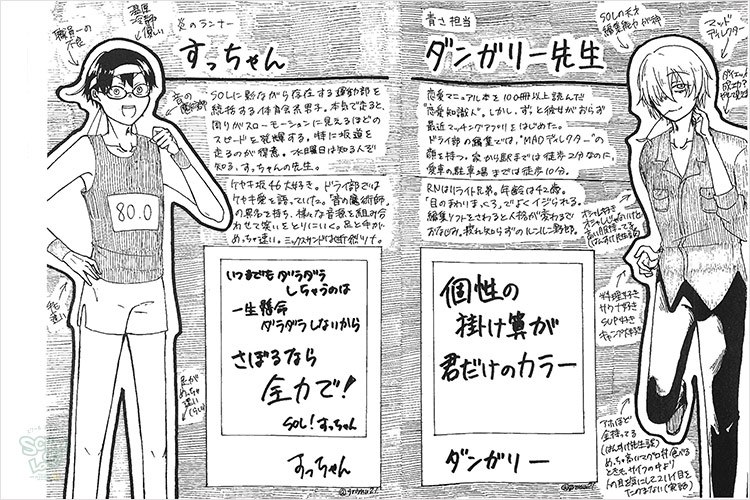 職員一の
不在
温厚
冷静
優しい
炎のランナー
すっちゃん
音の
魔術師
SOLに影ながら存在する運動部を
統括する体育会系男子。本気で走ると、
周りがスローモーションに見えるほどの
スピードを発揮する。特に坂道を
走るのが得意。水曜日は知る人ぞ
知る、すっちゃんの先生。
ケヤキ坂46大好き。ドライ部では
ケヤキ愛を語っていた。"音の魔術師"
の異名を持ち、様々な音源を組み合
わせて笑いをとりにいく。足と手が
めっちゃ速い。
80.0
いつまでもダラダラ
しちゃうのは
一生懸命
ダラダラしないから
さぼるなら
全力で!
SOL!すっちゃん
すっちゃん
足が
めっちゃ
速い
青さ担当
ダンガリー先生
SOLの天才
編集能力が神
マッド
ディレクター
恋愛マニュアル本を100冊以上読んだ
"恋愛知識人"。しかし、ずっと彼女がおらず
最近マッチングアプリをはじめた。
ドライ部の編集では、"MADディレクター"の
顔を持つ。家から駅までは徒歩2分なのに、
愛車の駐車場までは徒歩10分。
RNはリライト兄弟。年齢は42歳。
「目のまわりまっくろ」でよくイジられる。
編集ソフトをさわると人格が変わるで
おなじみ。疲れ知らずのルンルン野郎。
個性の
掛け算が
君だけのカラー
ダンガリー
料理好き
サウナ好き
SUP好き
キャンプ大好き
アホほど
金持ってる